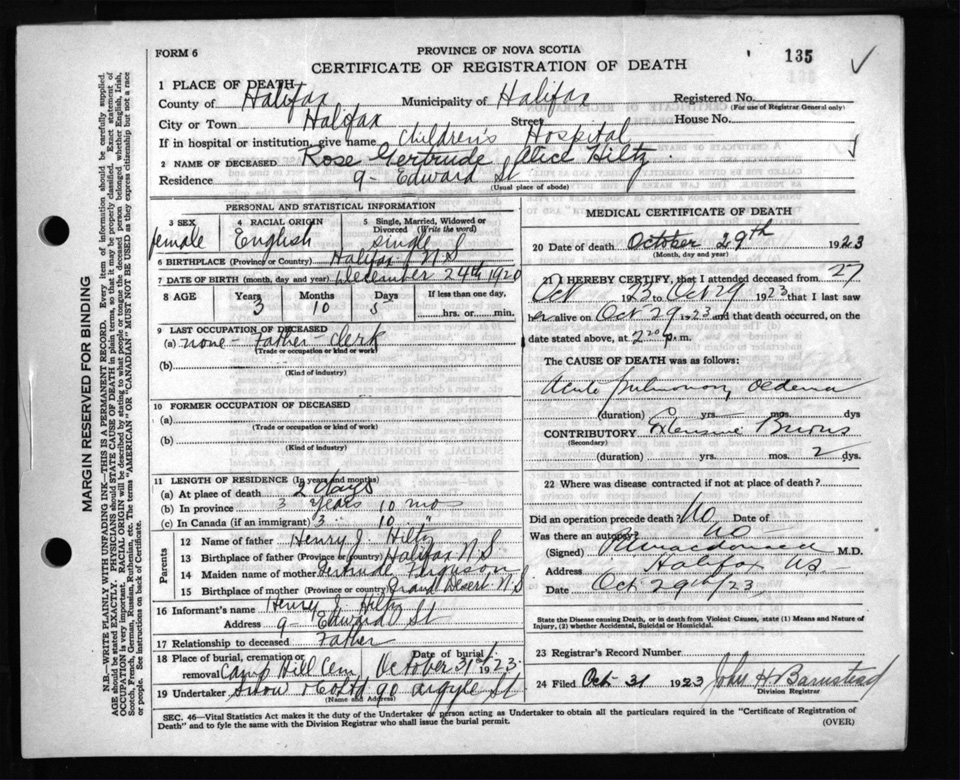 FORM 6
PROVINCE OF NOVA SCOTIA
135
CERTIFICATE OF REGISTRATION OF DEATH
1 PLACE OF DEATH
County of Halifax Municipality of Halifax Registered No.
(For use of Registrar General only)
City or Town Halifax Street House No.
If in hospital or institution, give name Children's Hospital
2 NAME OF DECEASED Rose Gertrude Alice Hiltz
Residence 9 - Edward St
(Usual place of abode)
PERSONAL AND STATISTICAL INFORMATION
3 SEX female
4 RACIAL ORIGIN English
5 Single, Married, Widowed or Divorced (Write the word) single S
6 BIRTHPLACE (Province or Country) Halifax N S
7 DATE OF BIRTH (month, day and year) December 24th 1920
8 AGE Years 3 Months 10 Days 5 If less than one day, hrs. or min.
9 LAST OCCUPATION OF DECEASED
(a) none - Father - clerk
(Trade or occupation or kind of work)
(b)
(Kind of industry)
10 FORMER OCCUPATION OF DECEASED
(a)
(Trade or occupation or kind of work)
(b)
(Kind of industry)
11 LENGTH OF RESIDENCE (In years and months)
(a) At place of death 2 days
(b) In province 3 years 10 mo
(c) In Canada (if an immigrant) 3 " 10 "
Parents
12 Name of father Henry J. Hiltz
13 Birthplace of father (Province or country) Halifax N S
14 Maiden name of mother Gertrude Ferguson
15 Birthplace of mother (Province or country) Grand Desert N.S
16 Informant's name Henry J Hiltz
Address 9 - Edward St
17 Relationship to deceased Father
18 Place of burial, cremation or removal Camp Hill Cem Date of burial October 31st 1923
19 Undertaker Snow & Co Ltd 90 Argyle St
(Name and Address)
MEDICAL CERTIFICATE OF DEATH
20 Date of death October 29th 1923
(Month, day and year)
21 I HEREBY CERTIFY, that I attended deceased from 27
Oct 1923 to Oct 29 1923 that I last saw
her alive on Oct 29 1923 and that death occurred, on the
date stated above, at 2 20 p.m.
The CAUSE OF DEATH was as follows:
Acute pulmonary oedema
(duration) yrs. mos. dys
CONTRIBUTORY Extensive Burns
(Secondary)
(duration) yrs. mos. 2 dys.
22 Where was disease contracted if not at place of death?
Did an operation precede death? No Date of
Was there an autopsy? No
(Signed) Macdonald M.D.
Address Halifax NS
Date Oct 29th/23
State the Disease causing Death, or in death from Violent Causes, state (1) Means and Nature of Injury, (2) whether Accidental, Suicidal or Homicidal.
23 Registrar's Record Number
24 Filed Oct 31 1923 John H Barnstead
Division Registrar
SEC. 46—Vital Statistics Act makes it the duty of the Undertaker or person acting as Undertaker to obtain all the particulars required in the "Certificate of Registration of
Death" and to fyle the same with the Division Registrar who shall issue the burial permit.
(OVER)
MARGIN RESERVED FOR BINDING
N.B.—WRITE PLAINLY WITH UNFADING INK—THIS IS A PERMANENT RECORD. Every item of information should be carefully supplied.
AGE should be stated EXACTLY. PHYSICIANS should STATE CAUSE OF DEATH in plain terms, so that it may be properly classified. Exact statement of
OCCUPATION is very important. RACIAL ORIGIN will be described by stating to what people or tongue the deceased person belonged whether English, Irish,
Scotch, French, German, Russian, Ruthenian, etc. The terms "AMERICAN" OR "CANADIAN" MUST NOT BE USED as they express citizenship but not a race
or people. See instructions on back of Certificate.